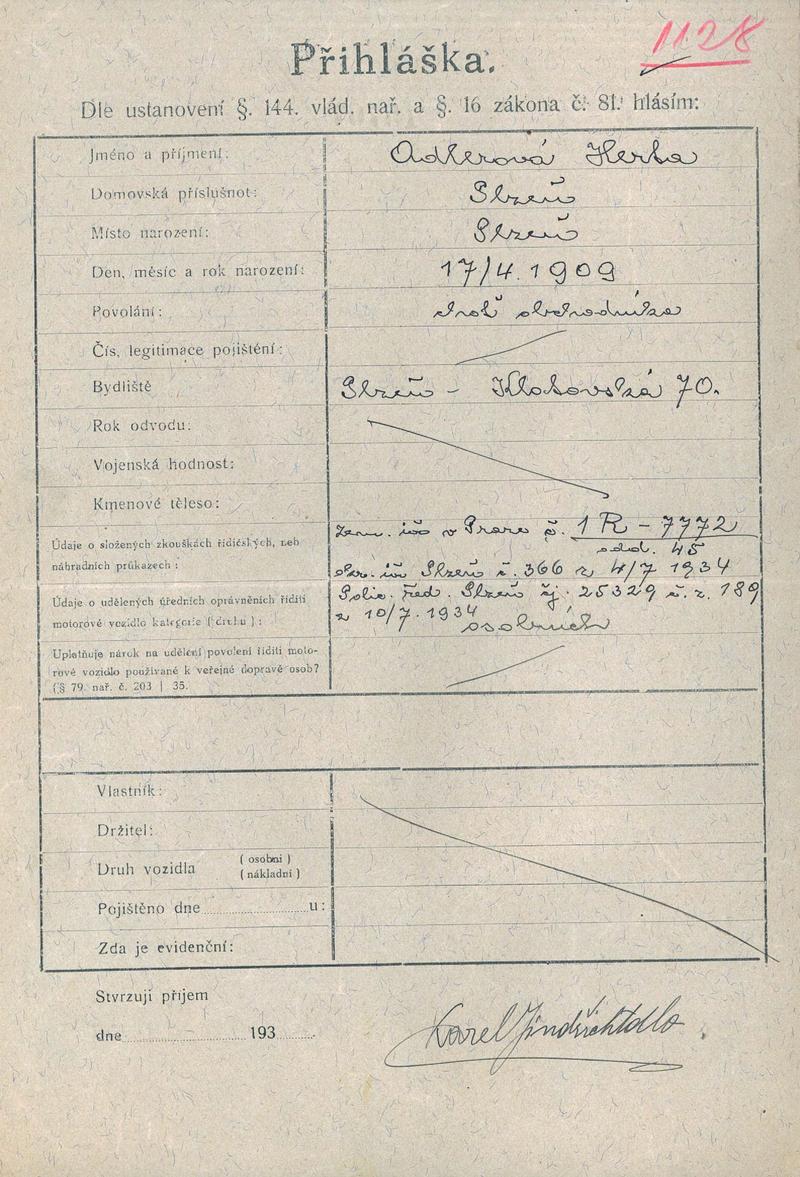 1128
Přihláška.
Dle ustanovení §. 144. vlád. nař. a §. 16 zákona č. 81. hlásím:
Jméno a příjmení: Adlerová Herta
Domovská příslušnot: Plzeň
Místo narození: Plzeň
Den, měsíc a rok narození: 17/4. 1909
Povolání: choť obchodníka
Čís. legitimace pojištění:
Bydliště Plzeň - Klatovská 70.
Rok odvodu:
Vojenská hodnost:
Kmenové těleso:
Údaje o složených zkouškách řidičských, neb
náhradních průkazech:
Zem. úř. v Praze č. 1 R - 7772
odd. 45
okr. úř. Plzeň č. 366 z 4/7 1934
Údaje o udělených úředních oprávněních říditi
motorové vozidlo kategorie (druhu):
Polic. řed. Plzeň čj. 25329 č. z. 189
z 10/7. 1934
Uplatňuje nárok na udělení povolení říditi moto-
rové vozidlo používané k veřejné dopravě osob?
(§ 79. nař. č. 203 | 35.
Vlastník:
Držitel:
Druh vozidla (osobní)
(nákladní)
Pojištěno dne u:
Zda je evidenční:
Stvrzuji příjem
dne 193
Karel